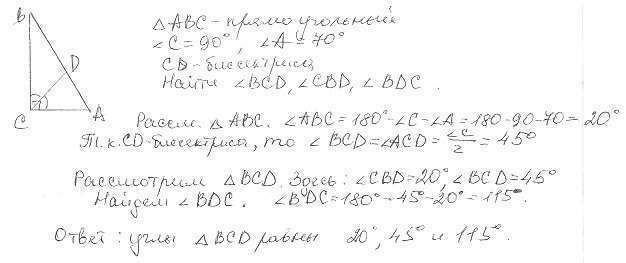 B
D
C
A
△ABC - прямоугольный
∠C = 90°, ∠A = 70°
CD - биссектриса
Найти ∠BCD, ∠CBD, ∠BDC.
Рассм. △ABC. ∠ABC = 180° - ∠C - ∠A = 180 - 90 - 70 = 20°
Т.к. CD - биссектриса, то ∠BCD = ∠ACD = ∠C/2 = 45°
Рассмотрим △BCD. Здесь: ∠CBD = 20°, ∠BCD = 45°
Найдем ∠BDC. ∠BDC = 180° - 45° - 20° = 115°.
Ответ: углы △BCD равны 20°, 45° и 115°.